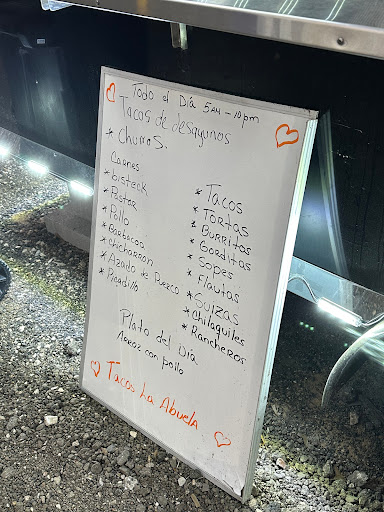 Todo el Día 5AM-10pm
Tacos de desayunos
* Churros.
Carnes
* bisteck
* Pastor
* Pollo
* Barbacoa
* chicharron
* Azado de Puerco
* Picadillo
* Tacos
* Tortas
* Burritos
* Gorditas
* Sopes
* Flautas
* Suizas
* Chilaquiles
* Rancheros
Plato del Día
Arroz con pollo
Tacos La Abuela